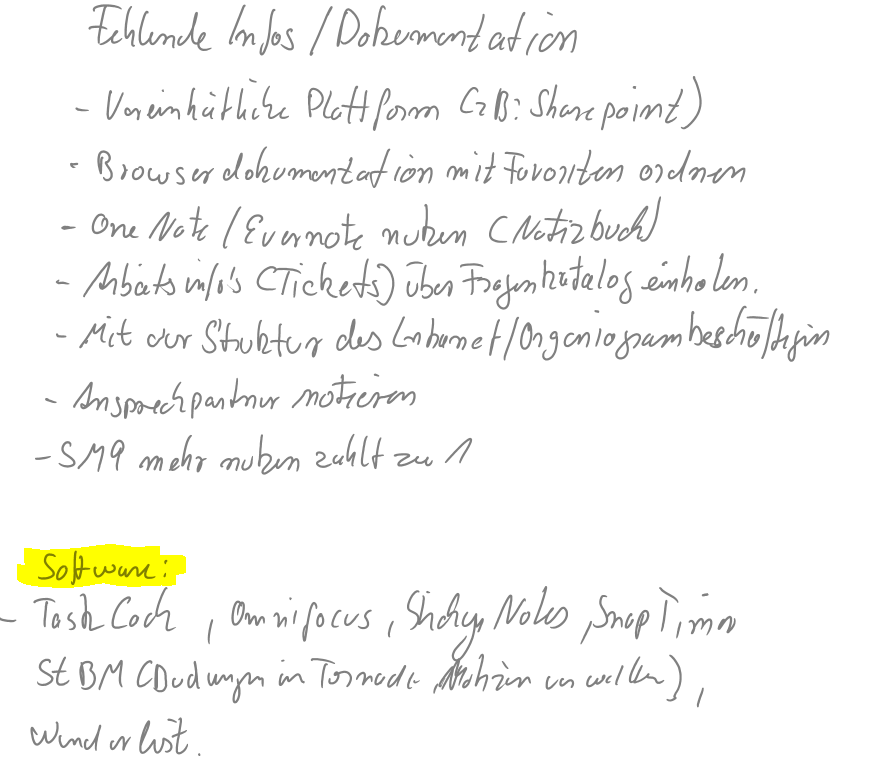 Fehlende Infos / Dokumentation
- Vereinheitliche Plattform (zB: Sharepoint)
- Browserdokumentation mit Favoriten ordnen
- One Note / Evernote nutzen (Notizbuch)
- Arbeitsinfo's (Tickets) über Fragenkatalog einholen.
- Mit der Struktur des Intranet/Organiogram beschäftigen
- Ansprechpartner notieren
- SM9 mehr nutzen zählt zu 1
Software:
- Task Coch, Omnifocus, Sticky Notes, SnapTimer
StBM (in Tornado, verwalten),
Wunderlist.